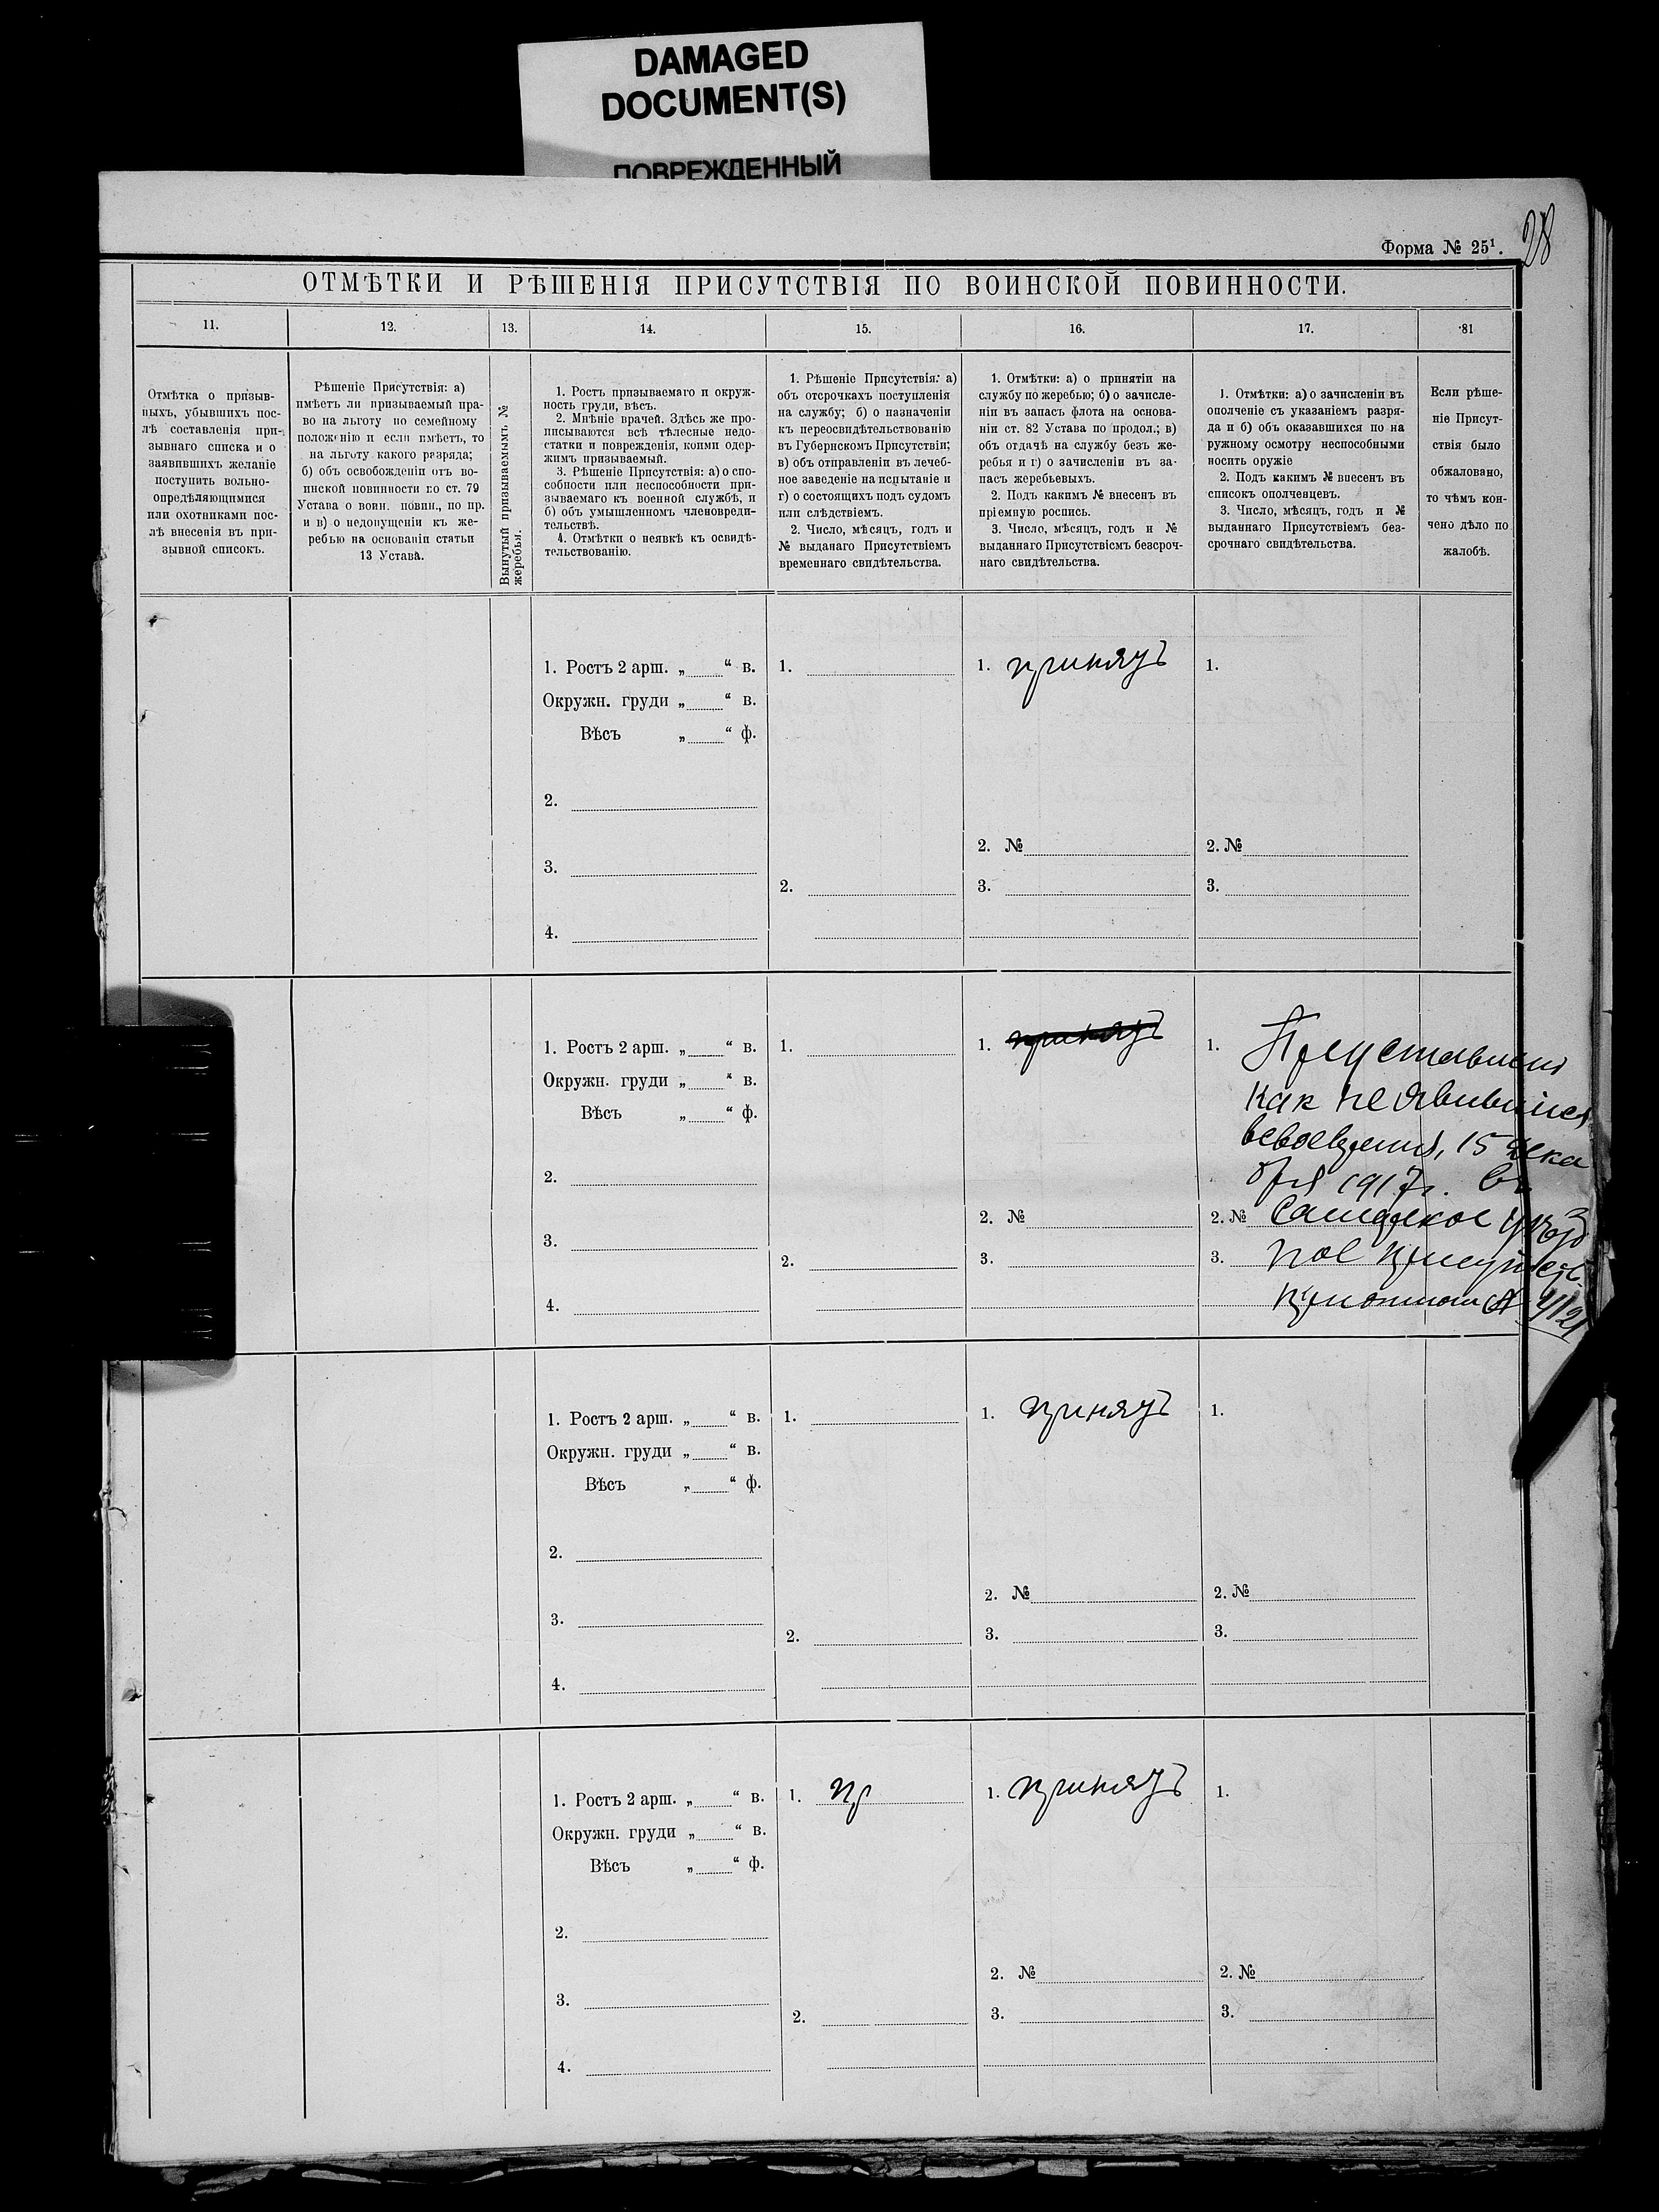 DAMAGED
DOCUMENT(S)
ПОВРЕЖДЕННЫЙ
28
Форма № 25¹.
ОТМѢТКИ И РѢШЕНІЯ ПРИСУТСТВІЯ ПО ВОИНСКОЙ ПОВИННОСТИ.
11.
12.
13.
14.
15.
16.
17.
81
Отмѣтка о призыв-
ныхъ, убывшихъ пос-
лѣ составленія при-
зывнаго списка и о
заявившихъ желаніе
поступить вольно-
опредѣляющимися
или охотниками пос-
лѣ внесенія въ при-
зывной списокъ.
Рѣшеніе Присутствія: а)
имѣетъ ли призываемый пра-
во на льготу по семейному
положенію и если имѣетъ, то
на льготу какого разряда;
б) объ освобожденіи отъ во-
инской повинности по ст. 79
Устава о воин. повин., по пр.
и в) о недопущеніи къ же-
ребью на основаніи статьи
13 Устава.
Вынутый призываемымъ №
жеребья.
1. Ростъ призываемаго и окруж-
ность груди, вѣсъ.
2. Мнѣніе врачей. Здѣсь же про-
писываются всѣ тѣлесные недо-
статки и поврежденія, коими одер-
жимъ призываемый.
3. Рѣшеніе Присутствія: а) о спо-
собности или неспособности при-
зываемаго къ военной службѣ, и
б) объ умышленномъ членовреди-
тельствѣ.
4. Отмѣтки о неявкѣ къ освидѣ-
тельствованію.
1. Рѣшеніе Присутствія: а)
объ отсрочкахъ поступленія
на службу; б) о назначеніи
къ переосвидѣтельствованію
въ Губернскомъ Присутствіи;
в) объ отправленіи въ лечеб-
ное заведеніе на испытаніе и
г) о состоящихъ подъ судомъ
или слѣдствіемъ.
2. Число, мѣсяцъ, годъ и
№ выданаго Присутствіемъ
временнаго свидѣтельства.
1. Отмѣтки: а) о принятіи на
службу по жеребью; б) о зачисле-
ніи въ запасъ флота на основа-
ніи ст. 82 Устава по продол.; в)
объ отдачѣ на службу безъ же-
ребья и г) о зачисленіи въ за-
пасъ жеребьевыхъ.
2. Подъ какимъ № внесенъ въ
пріемную роспись.
3. Число, мѣсяцъ, годъ и №
выданнаго Присутствіемъ безсроч-
наго свидѣтельства.
1. Отмѣтки: а) о зачисленіи въ
ополченіе съ указаніемъ разря-
да и б) объ оказавшихся по на
ружному осмотру неспособными
носить оружіе
2. Подъ какимъ № внесенъ въ
списокъ ополченцевъ.
3. Число, мѣсяцъ, годъ и №
выданнаго Присутствіемъ без-
срочнаго свидѣтельства.
Если рѣше-
ніе Присут-
ствія было
обжаловано,
то чѣмъ кон-
чено дѣло по
жалобѣ.
1. Ростъ 2 арш. „ “ в.
Окружн. груди „ “ в.
Вѣсъ „ “ ф.
2.
3.
4.
1.
2.
1. принятъ
2. №
3.
1.
2. №
3.
1. Ростъ 2 арш. „ “ в.
Окружн. груди „ “ в.
Вѣсъ „ “ ф.
2.
3.
4.
1.
2.
1. принятъ
2. №
3.
1.
как не явившійся
15 дека
бря 1917 г. въ
2. №
3.
1. Ростъ 2 арш. „ “ в.
Окружн. груди „ “ в.
Вѣсъ „ “ ф.
2.
3.
4.
1.
2.
1. принятъ
2. №
3.
1.
2. №
3.
1. Ростъ 2 арш. „ “ в.
Окружн. груди „ “ в.
Вѣсъ „ “ ф.
2.
3.
4.
1. пр
2.
1. принятъ
2. №
3.
1.
2. №
3.